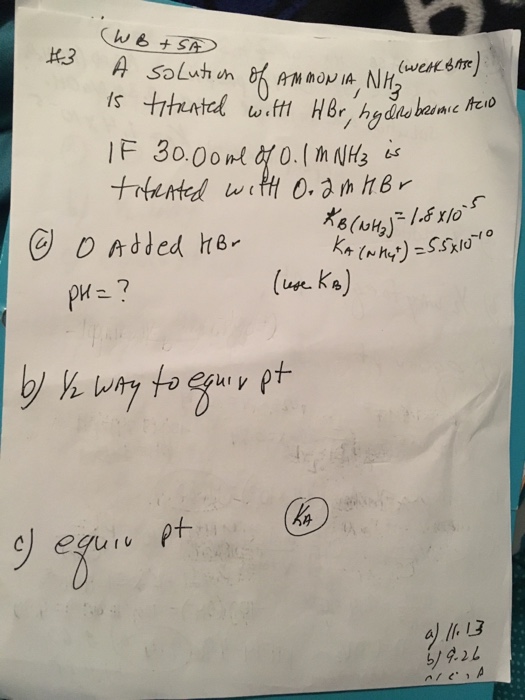 (WB + SA)
#3 A Solution of AMMONIA, NH3 (weak BASE)
is titrated with HBr, hydrobromic Acid
IF 30.00 ml of 0.1 m NH3 is
titrated with 0.2 m HBr
KB(NH3) = 1.8 x 10^-5
KA(NH4+) = 5.5x10^-10
a) 0 Added HBr
pH = ? (use KB)
b) 1/2 way to equiv pt
KA
c) equiv pt
a) 11.13
b) 9.26